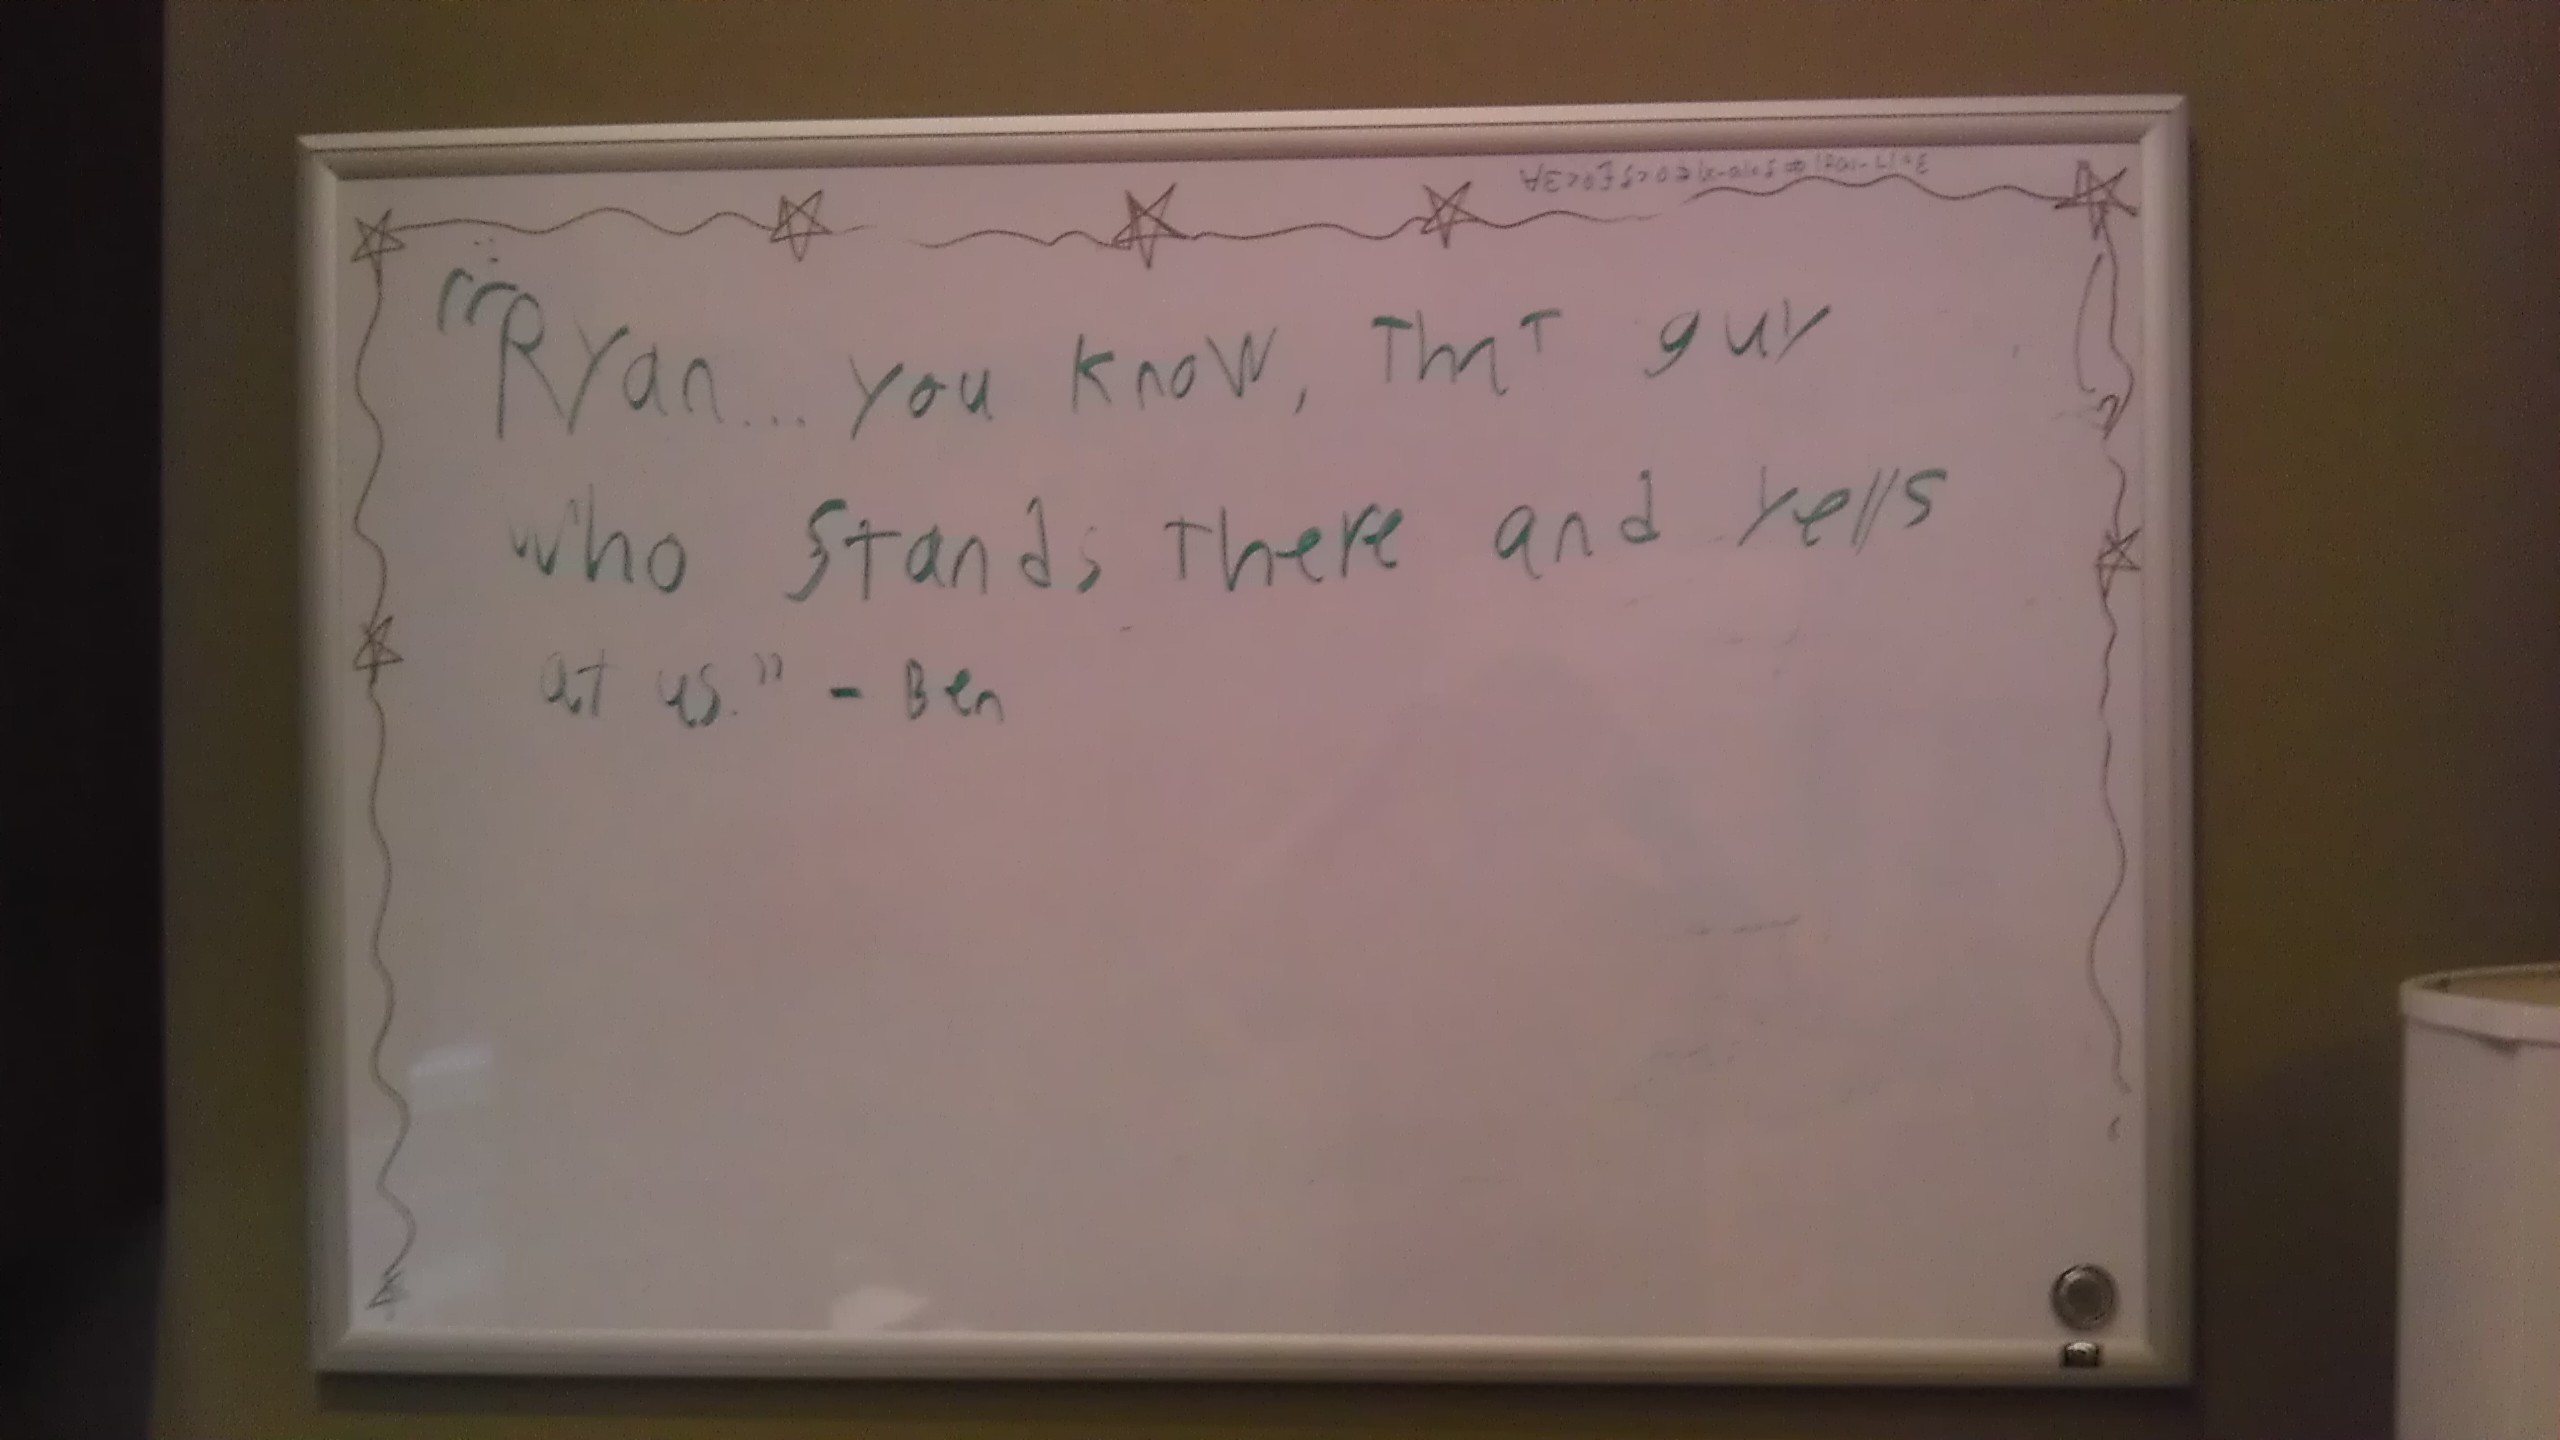 "Ryan... you know, that guy
who stands there and yells
at us." - Ben